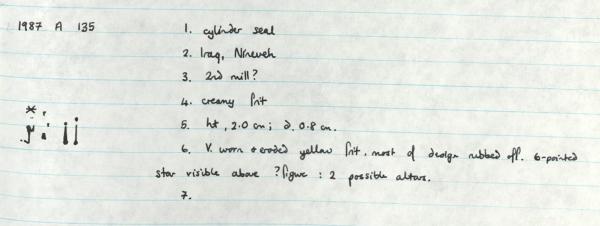 1987 A 135
1. cylinder seal
2. Iraq, Nineveh
3. 2nd mill?
4. creamy frit
5. ht, 2.0 cm; d. 0.8 cm.
6. V. worn & eroded yellow frit. most of design rubbed off. 6-pointed
star visible above ?figure : 2 possible altars.
7.